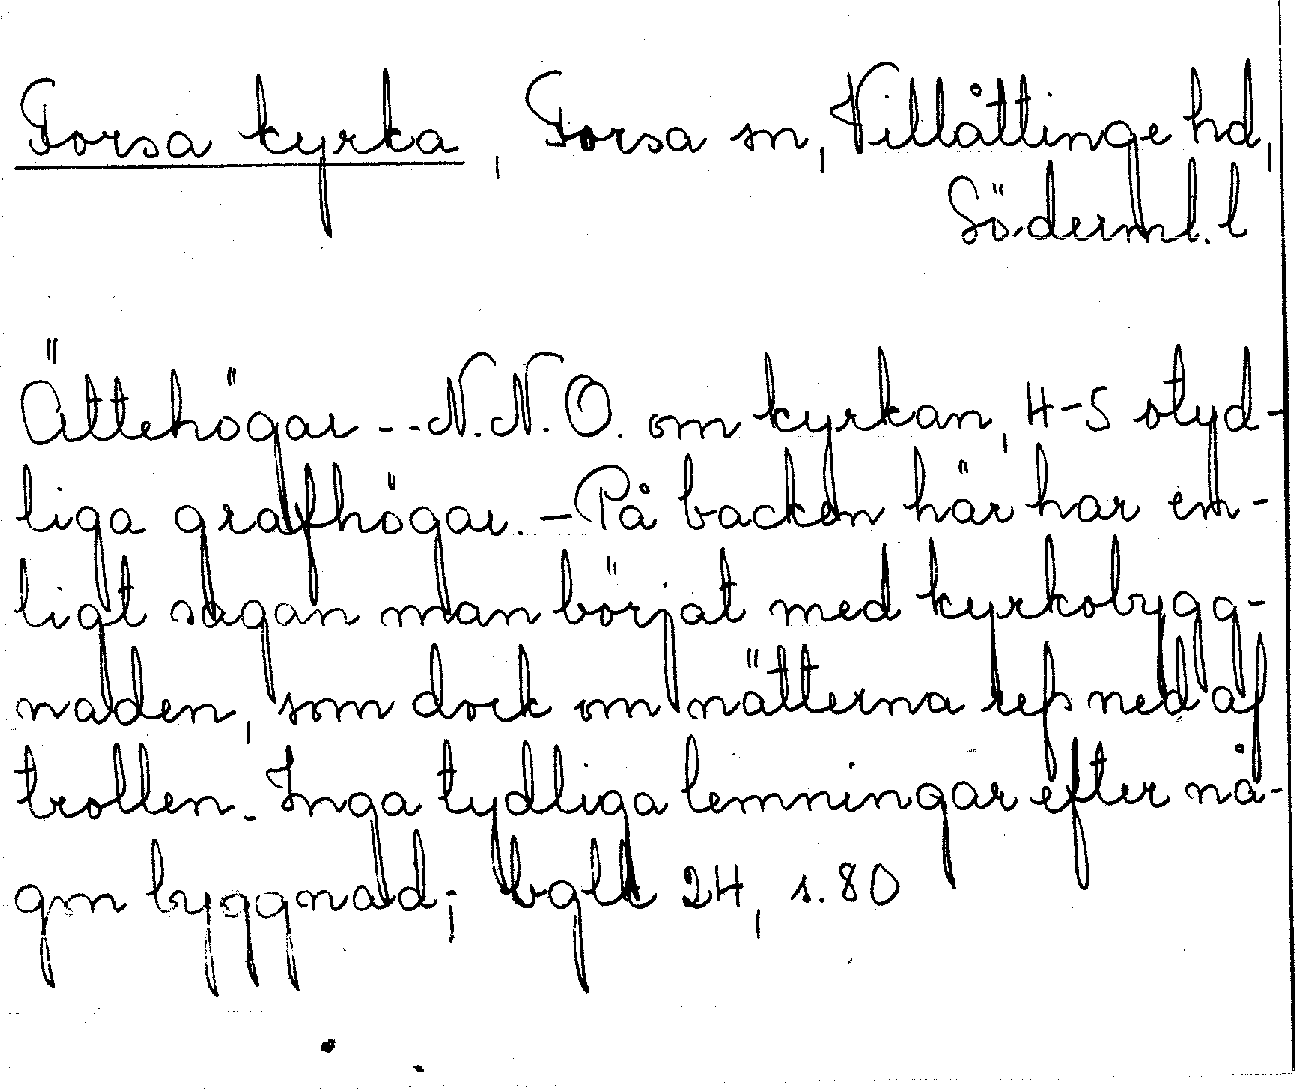 Forsa kyrka, Forsa sn, Villåttinge hd,
Söderml. l
Ättehögar -- N.N.O. om kyrkan, 4-5 otyd-
liga grafhögar. - På backen här har en-
ligt sagan man börjat med kyrkobygg-
naden, som dock om nätterna refs ned af
trollen. Inga tydliga lemningar efter nå-
gon byggnad; bglk 24, s. 80